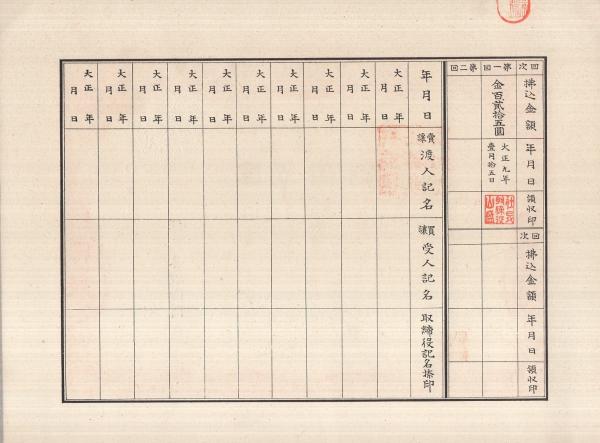 回次
第一回
第二回
拂込金額
金百貳拾五圓
年月日
大正九年
壹月拾五日
領収印
回次
拂込金額
年月日
領収印
年月日
大正 年 月 日
大正 年 月 日
大正 年 月 日
大正 年 月 日
大正 年 月 日
大正 年 月 日
大正 年 月 日
大正 年 月 日
大正 年 月 日
大正 年 月 日
賣讓渡人記名
買讓受人記名
取締役記名捺印